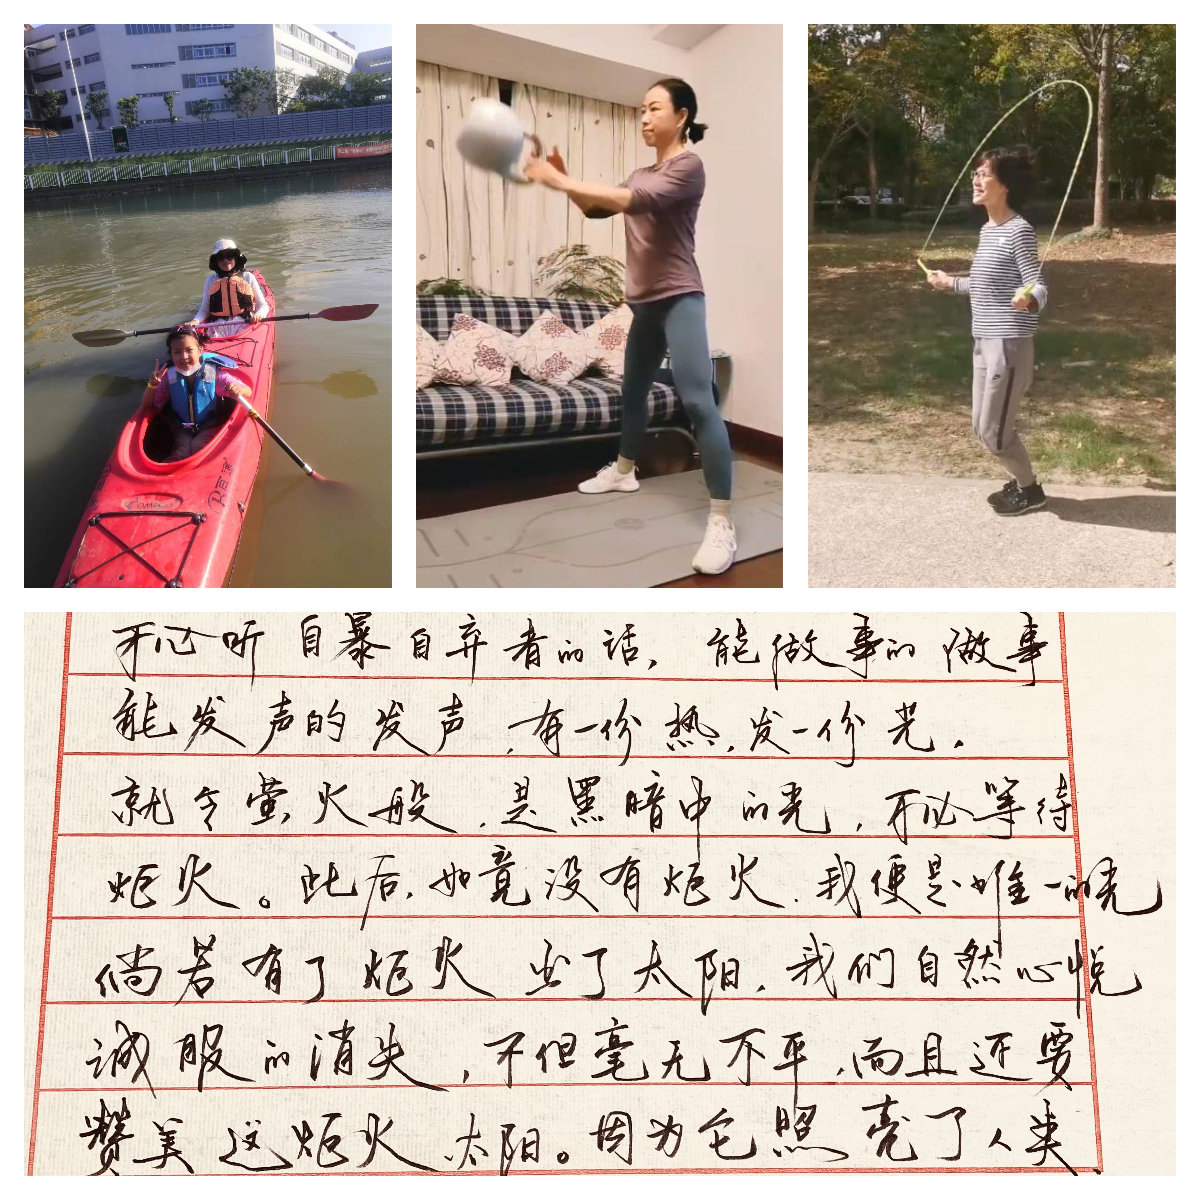 百溪
不必听自暴自弃者的话，能做事的做事
能发声的发声，有一份热，发一份光。
就令萤火般，是黑暗中的光，不必等待
炬火。此后，如竟没有炬火，我便是唯一的光
倘若有了炬火出了太阳，我们自然心悦
诚服的消失，不但毫无不平，而且还要
赞美这炬火太阳。因为它照亮了人类